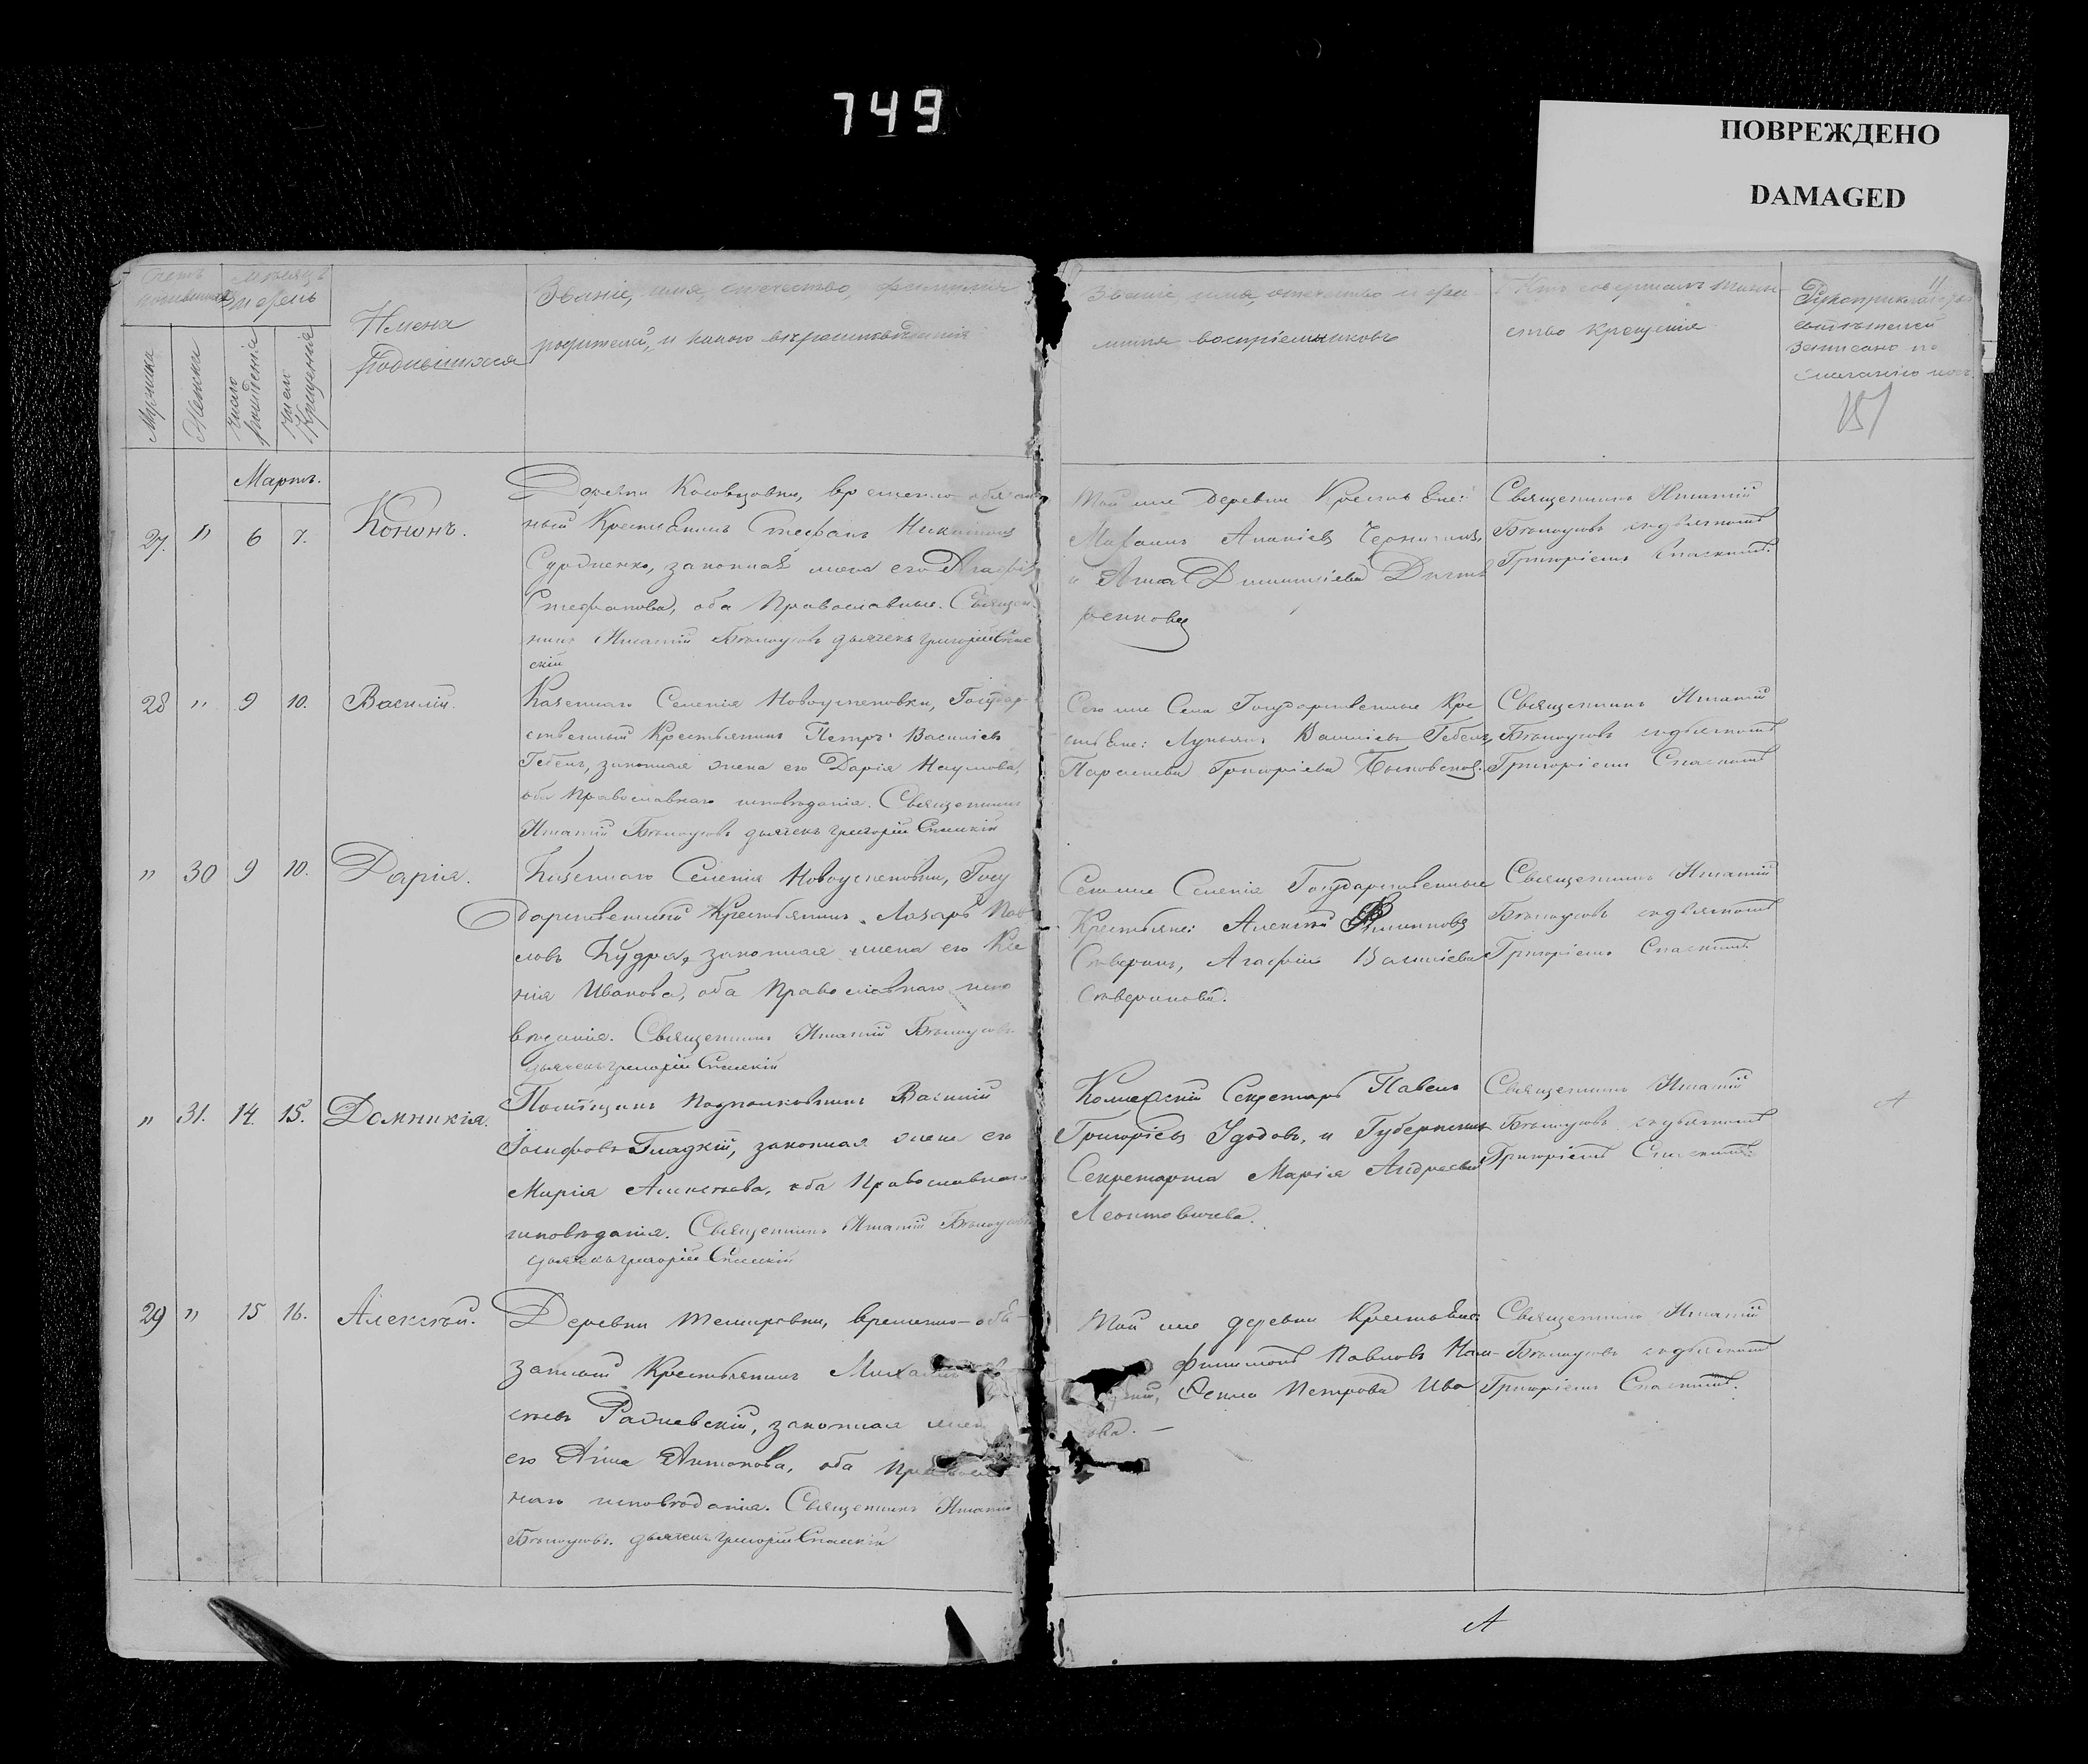 749
ПОВРЕЖДЕНО
DAMAGED
Счетъ
Мѣсяцъ
и день
Мужеска
Женска
Число рожденія
Число Крещенія
Имена
Родившихся
Званіе, имя, отчество, фамилія
родителей, и какого вѣроисповѣданія
Званіе, имя, отчество и фа-
милія воспріемниковъ
Кто совершалъ таин-
ство крещенія
Рукоприкладство
свидѣтелей
записано по
желанію
11
151
Мартъ.
27. " 6 7. Кононъ.
временно обязан
ный Крестьянинъ Стефанъ Никитинъ
законная жена его Агафія
Стефанова, оба Православные. Священ
никъ Игнатій Бѣлоусовъ дьячекъ Григорій Спас
скій
Той же деревни Крестьяне:
Михаилъ Ананіевъ
и Анна
Священникъ Игнатій
Бѣлоусовъ съ дьячкомъ
Григоріемъ Спаскимъ.
28 " 9 10. Василій.
Казеннаго Селенія Новоуспеновки, Государ-
ственный Крестьянинъ Петръ Васильевъ
законная жена его Дарія Наумова,
оба Православнаго исповѣданія. Священникъ
Игнатій Бѣлоусовъ дьячекъ Григорій Спасскій
Сего же Села Государственные Кре
стьяне: Лукьянъ Васильевъ
Параскева Григоріева
Священникъ Игнатій
Бѣлоусовъ съ дьячкомъ
Григоріемъ Спаскимъ
" 30 9 10. Дарія.
Казеннаго Селенія Новоуспеновки, Госу
дарственный Крестьянинъ Лазарь Пав
ловъ Кудря, законная жена его Ксе
нія Иванова, оба Православнаго испо
вѣданія. Священникъ Игнатій Бѣлоусовъ
дьячекъ Григорій Спасскій
Сего же Селенія Государственные
Крестьяне: Алексѣй Филиповъ
Агафія Васильева
Священникъ Игнатій
Бѣлоусовъ съ дьячкомъ
Григоріемъ Спаскимъ
" 31. 14. 15. Домникія.
Помѣщикъ Подполковникъ Василій
Іосифовъ Гладкій, законная жена его
Марія Алексѣева, оба Православнаго
исповѣданія. Священникъ Игнатій Бѣлоусовъ
дьячекъ Григорій Спасскій
Коллежскій Секретарь Павелъ
Григоріевъ Удодовъ, и Губернская
Секретарша Марія Андреева
Леонтовичева.
Священникъ Игнатій
Бѣлоусовъ съ дьячкомъ
Григоріемъ Спаскимъ.
29 " 15 16. Алексѣй.
Деревни Темировки, временно-обя-
занный Крестьянинъ Михаилъ
законная жена
его Анна Антонова, оба Православ
наго исповѣданія. Священникъ Игнатій
Бѣлоусовъ. дьячекъ Григорій Спасскій
Той же деревни Крестьяне:
Филимонъ Павловъ
Петрова Ива
ова. —
Священникъ Игнатій
Бѣлоусовъ съ дьячкомъ
Григоріемъ Спаскимъ.
А